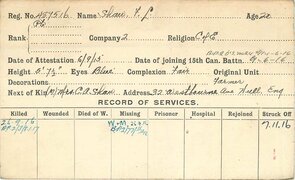 Reg. No. A57516 Name Shaw, F. C. Age 20
Pte
Rank Company 2 Religion C of E
Date of Attestation 6/9/15 Date of joining 15th Can. Battn. 9-6-16
Height 5' 7½" Eyes Blue Complexion Fair Original Unit
Decorations Farmer
Next of Kin (M) Mrs. C. A. Shaw Address 32 Ave Hull Eng
RECORD OF SERVICES.
Killed Wounded Died of W. Missing Prisoner Hospital Rejoined Returned Struck Off
26-9-16 W+M 26.9.16 7.11.16